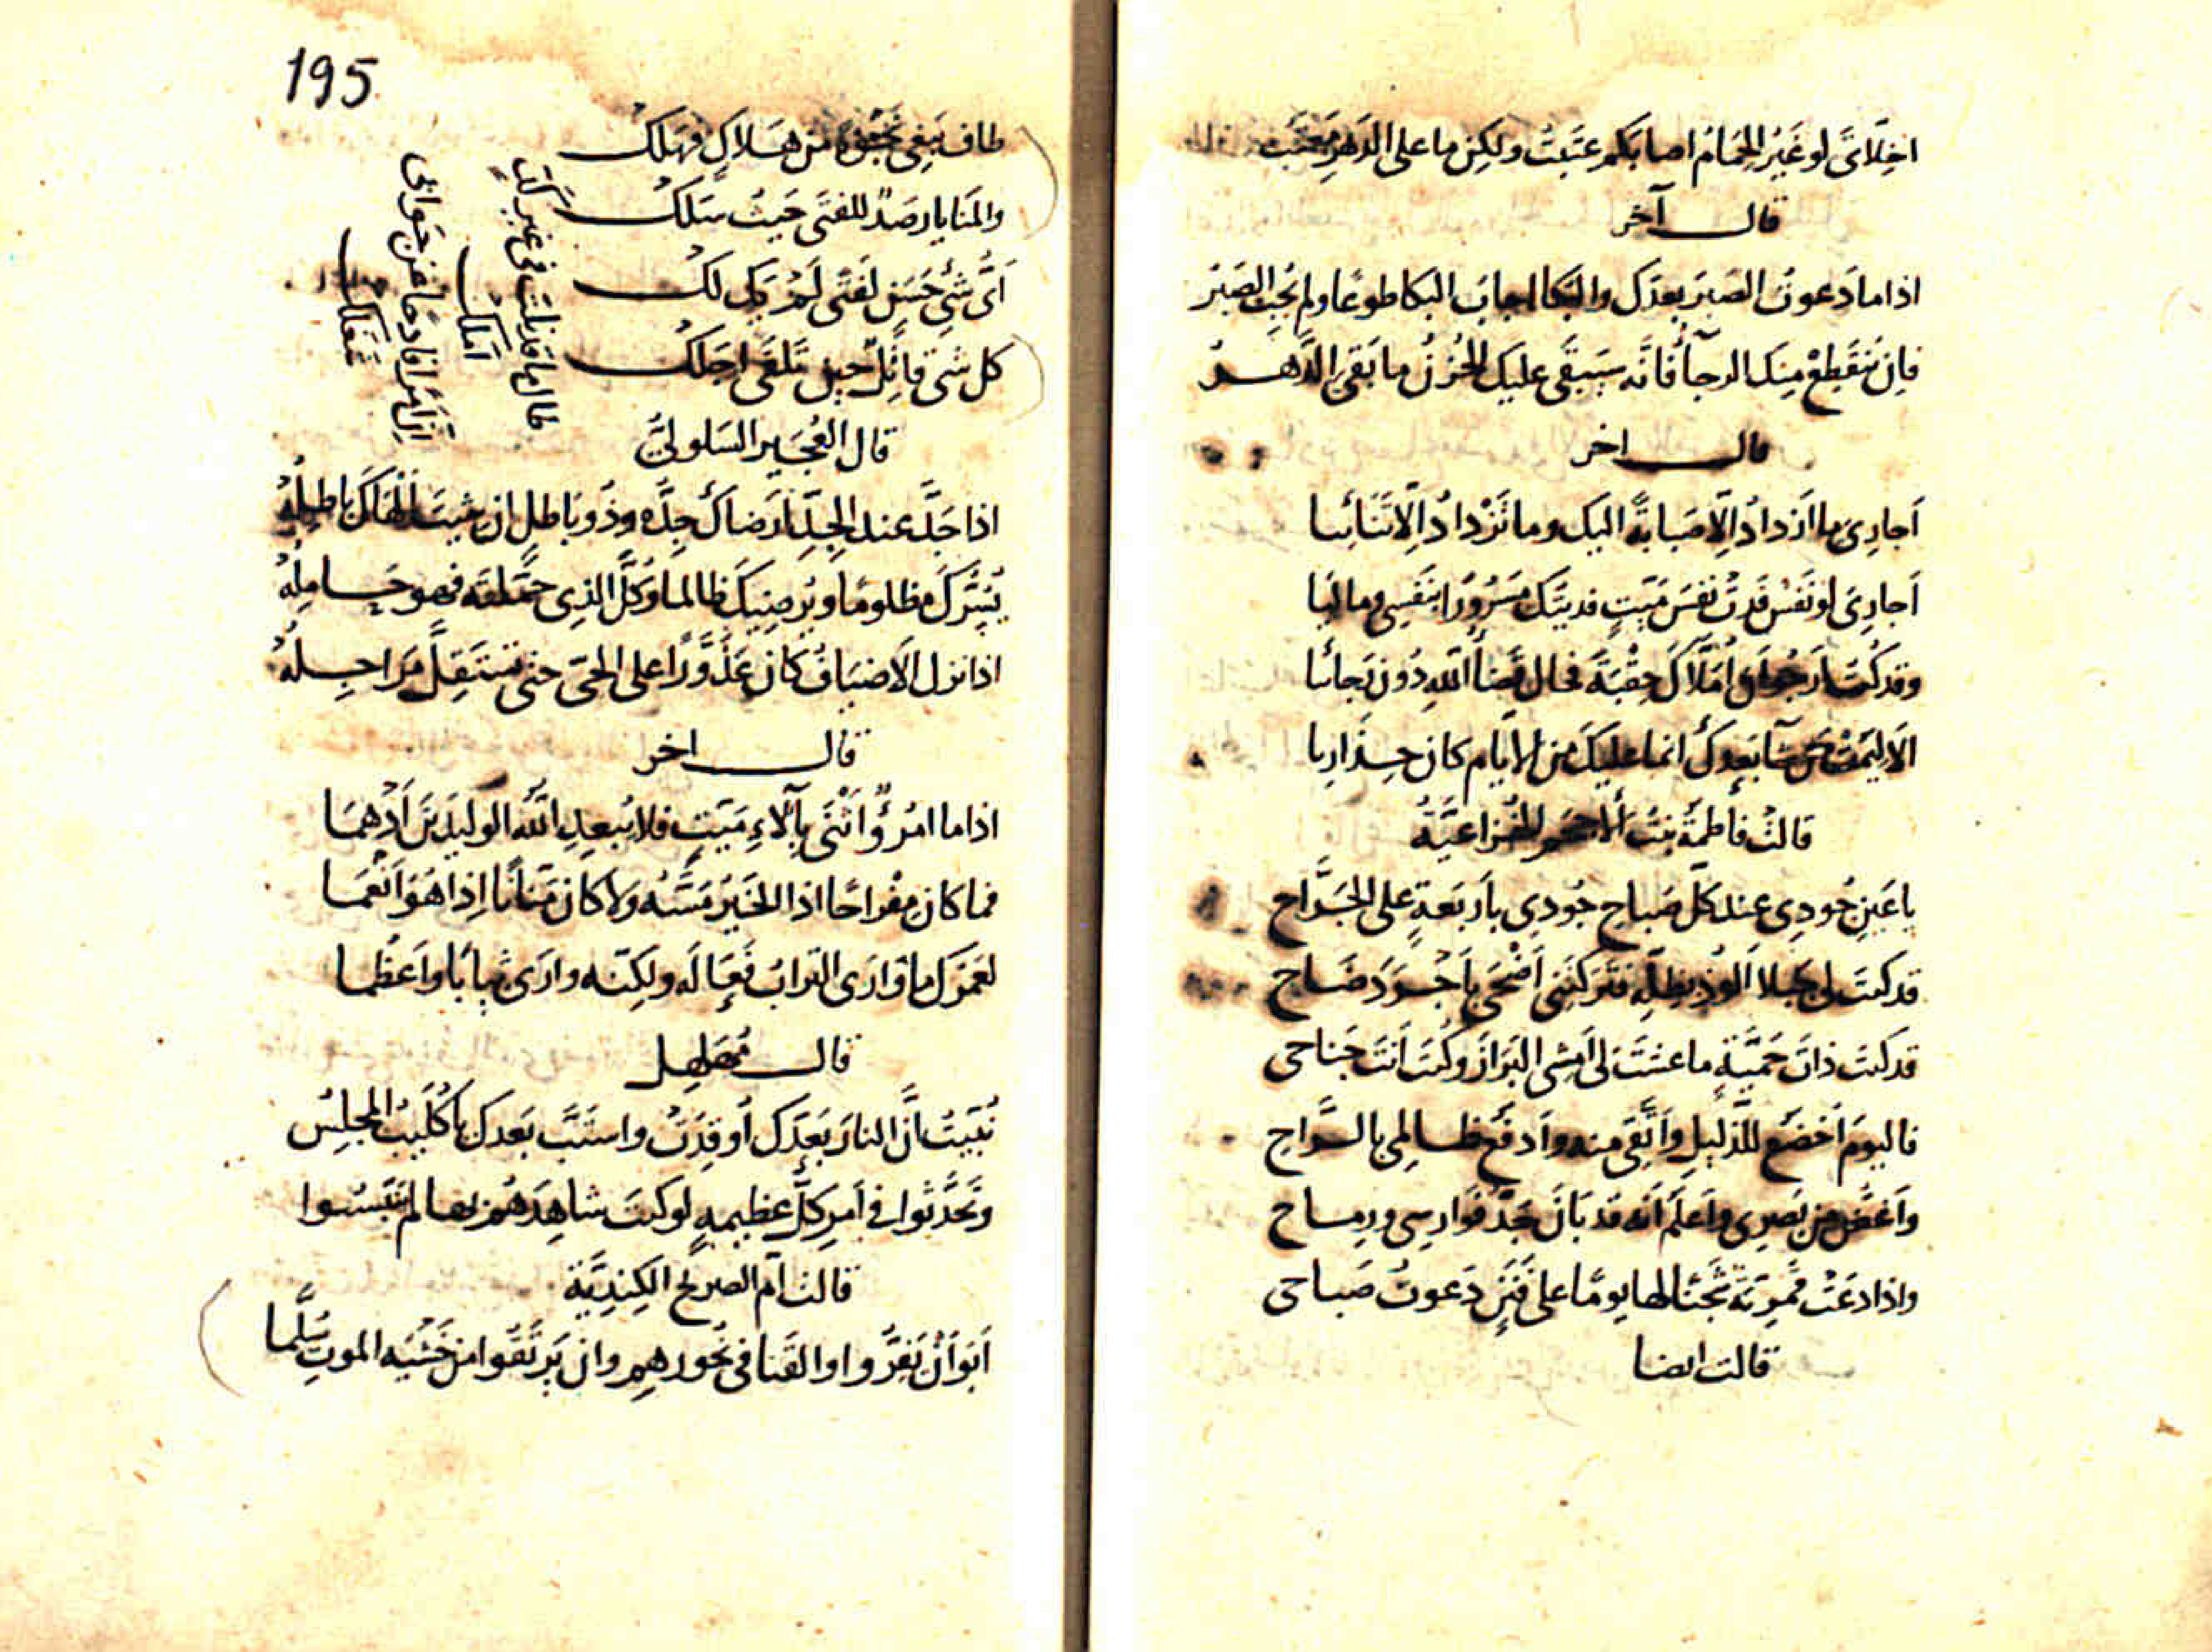 اخِلّاىَ لو غَيرُ الحِمَامُ اصابَكم عتَبتُ ولكِن ما على الدَهرِ مَعتَب
قال آخر
اذا ما دَعوتُ الصَبرَ بعدَكَ والبُكا اجابَ البكا طوعًا ولم يُجبِ الصَبرُ
فاِن يَنقَطِعْ مِنك الرجآُ فانّه سَيَبقَى عليك الحُزنُ ما بَقىَ الدَّهــرُ
قال اخر
اَجارِىَ ما اَزدادُ اِلّا صَبابَةً اليك وما تَزدادُ اِلّا تَنَائيا
اَجارِىَ لو نَفسٌ فَدَتْ نَفسَ مَيّتٍ فديتُك مَسْرُورًا بنَفسِى وماليا
وقد كُنتُ اَرجُو اَن اُمَلّآكَ حِقْبَةً فحال قَضآُ اللهِ دُونَ رَجائيا
اَلا لِيَمُتْ مَن شآ بَعدكَ انما عليكَ من الايّام كان حِذَارِيا
قالت فاطمَةُ بنتُ الاحجَم الخُزاعيَّةُ
يا عَينِ جُودِى عند كلّ صَباحِ جُودِى باَربَعةٍ على الجَرّاحِ
قد كنتَ لى جَبلا اَلوذُ بظلّهِ فتَركتَنِى اَضْحَى باَجْرَدَ ضَاحِ
قد كنتُ ذاتَ حَمِيَّةٍ ما عشتَ لى اَمشِى البَرَازَ وكنتَ اَنتَ جَناحى
فاليومَ اَخضَعُ للذّليلِ واَتَّقى منه واَدفَعُ ظالِمى بالرّاحِ
واَغُضُّ من بَصَرِى واَعلَمُ اَنّه قد بَانَ حَدُّ فَوارسِى ورِماح
واذا دعَتْ قُمرِيّةٌ شَجَنًا لها يومًا على فَنَنٍ دَعوتُ صَباحى
قالت ايضا
195
طاف يَبغِى نَجْوَةً مَن هَلاكٍ فهَلَكْ
والمَنايا رصَدٌ للفتَى حَيثُ سَلكْ
اَىُّ شَئٍ حَسَنٍ لفَتًى لَمْ يَكُ لَكْ
كل شى قاتِلٌ حين تَلقَى اجَلَكْ
طال ما قد نلتَ فى غير
اَمَلَكْ
اِنَّ اَمرًا فادحًا عن جَوابى
شَغَلَكْ
قال العُجَير السَلولىّ
اذا جَدَّ عند الجِدّ اَرضاكَ جِدُّه وذو باطلٍ ان شِيتَ اَلْهَاكَ باطِلُهْ
يَسُرُّكَ مظلومًا ويُرضِيكَ ظالما وكلُّ الذِى حَمَّلتَه فهو حَامِلُهْ
اذا نزل الاَضيافُ كان عَذَوَّرًا على الحَىّ حتى تَستَقِلَّ مَرَاجِلُهْ
قال اخر
اذا ما امرُؤٌ اَثنَى بآلاءِ مَيّتٍ فلا يُبعِدِ اللهُ الوَليدَ بنَ اَدْهَمَا
فما كان مِفْراحًا اذا الخَيرُ مَسَّهُ ولا كان مَنّانًا اِذا هُوَ اَنْعَمَا
لعَمرُكَ ما وارَى الترابُ فَعَالَه ولكِنّه وارَى ثِيابًا واَعظُما
قال مُهَلهِل
نُبّيتُ اَنَّ النارَ بَعدَكَ اُوقِدَتْ واستَبَّ بَعدكَ يا كُلَيبُ المجلِسُ
وتَحَدَّثوا فى اَمرِ كلّ عظيمةٍ لو كنتَ شاهِدَهُم بها لم يَنبِسُوا
قالت اُم الصريح الكِندِيَّة
اَبَوا اَنْ يَفِرُّوا والقَنا فى نُحورِهِم وان يَرتَقُوا من خَشْيَه الموتِ سُلَّما